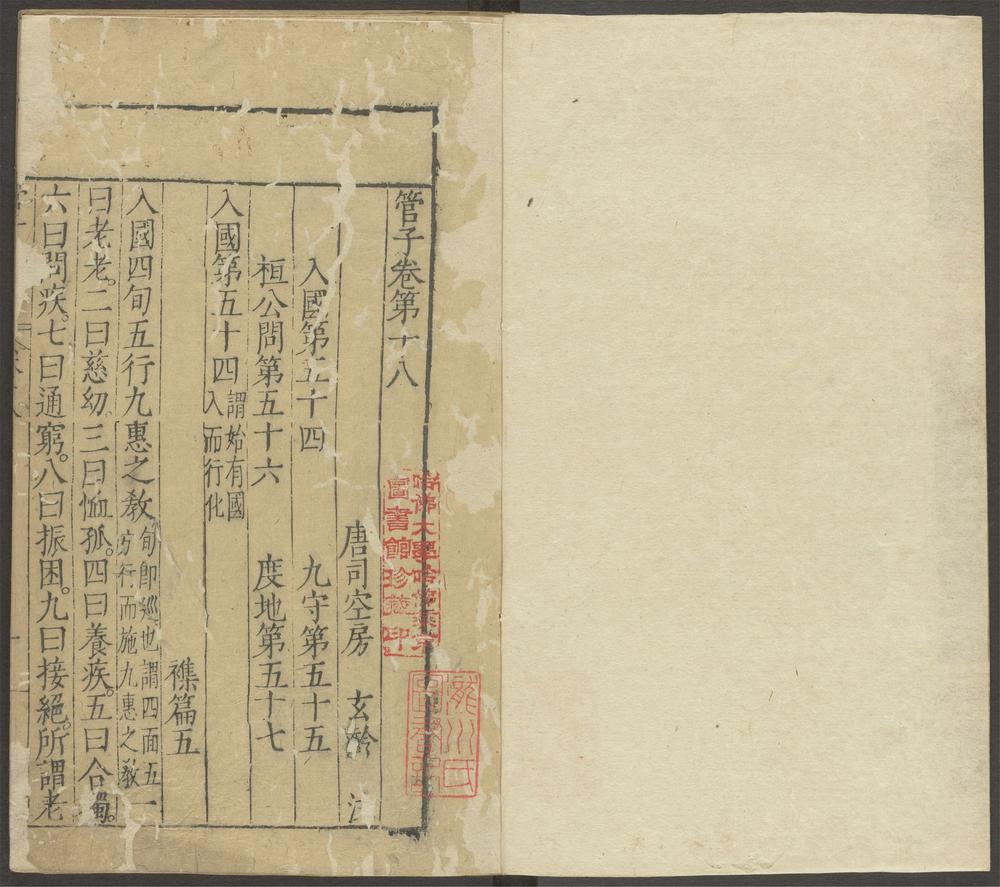 管子卷第十八
唐司空房 玄齡 注
入國第五十四 九守第五十五
桓公問第五十六 度地第五十七
入國第五十四 謂始有國入而行化
襍篇五
入國四旬五行九惠之教 旬即巡也謂四面五方行而施九惠之教 一
曰老老。二曰慈幼。三曰恤孤。四曰養疾。五曰合獨。
六曰問疾。七曰通窮。八曰振困。九曰接絕。所謂老
哈佛大學哈佛燕京
圖書館珍藏印